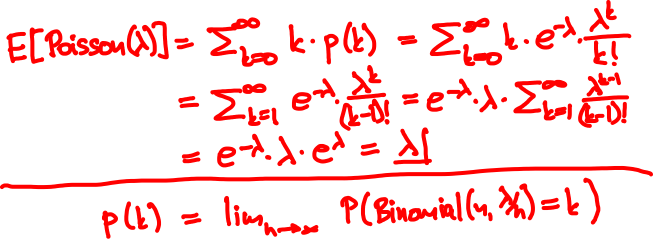 E[Poisson(λ)] = ∑_{k=0}^{∞} k · p(k) = ∑_{k=0}^{∞} k · e^{-λ} · λ^k/k!
= ∑_{k=1}^{∞} e^{-λ} · λ^k/(k-1)! = e^{-λ} · λ · ∑_{k=1}^{∞} λ^{k-1}/(k-1)!
= e^{-λ} · λ · e^{λ} = λ
p(k) = lim_{n→∞} P(Binomial(n, λ/n) = k)